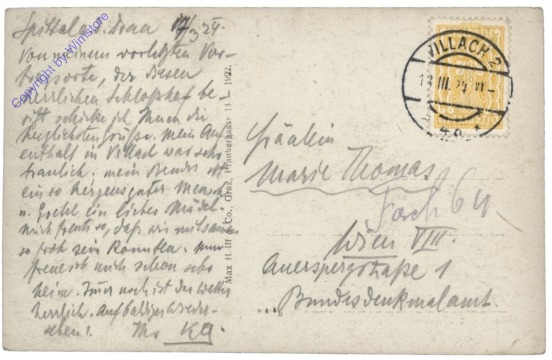 Spittal a. Drau 17/3 24.
Von meinem vorletzten Vor-
tragsorte, der diesen
herrlichen Schlosshof be-
sitzt schicke ich Ihnen die
herzlichsten Grüße. Mein Auf-
enthalt in Villach war sehr
traulich; mein Bruder ist
ein so herzensguter Mensch
u. Gretel ein liebes Mädel.
mich freut's so, daß wir mitsammen
so froh sein konnten. Nun
freue ich mich schon sehr
heim. Immer noch ist das Wetter
herrlich. Auf baldiges Wieder-
sehen! Ihr KG.
Copyright by Wimstore
Max H
Co., Graz, Prankergasse 11 – 1922.
VILLACH 2
13 III. 24
Fräulein
Marie Thomas
Wien VIII.
Auerspergstraße 1
Bundesdenkmalamt.